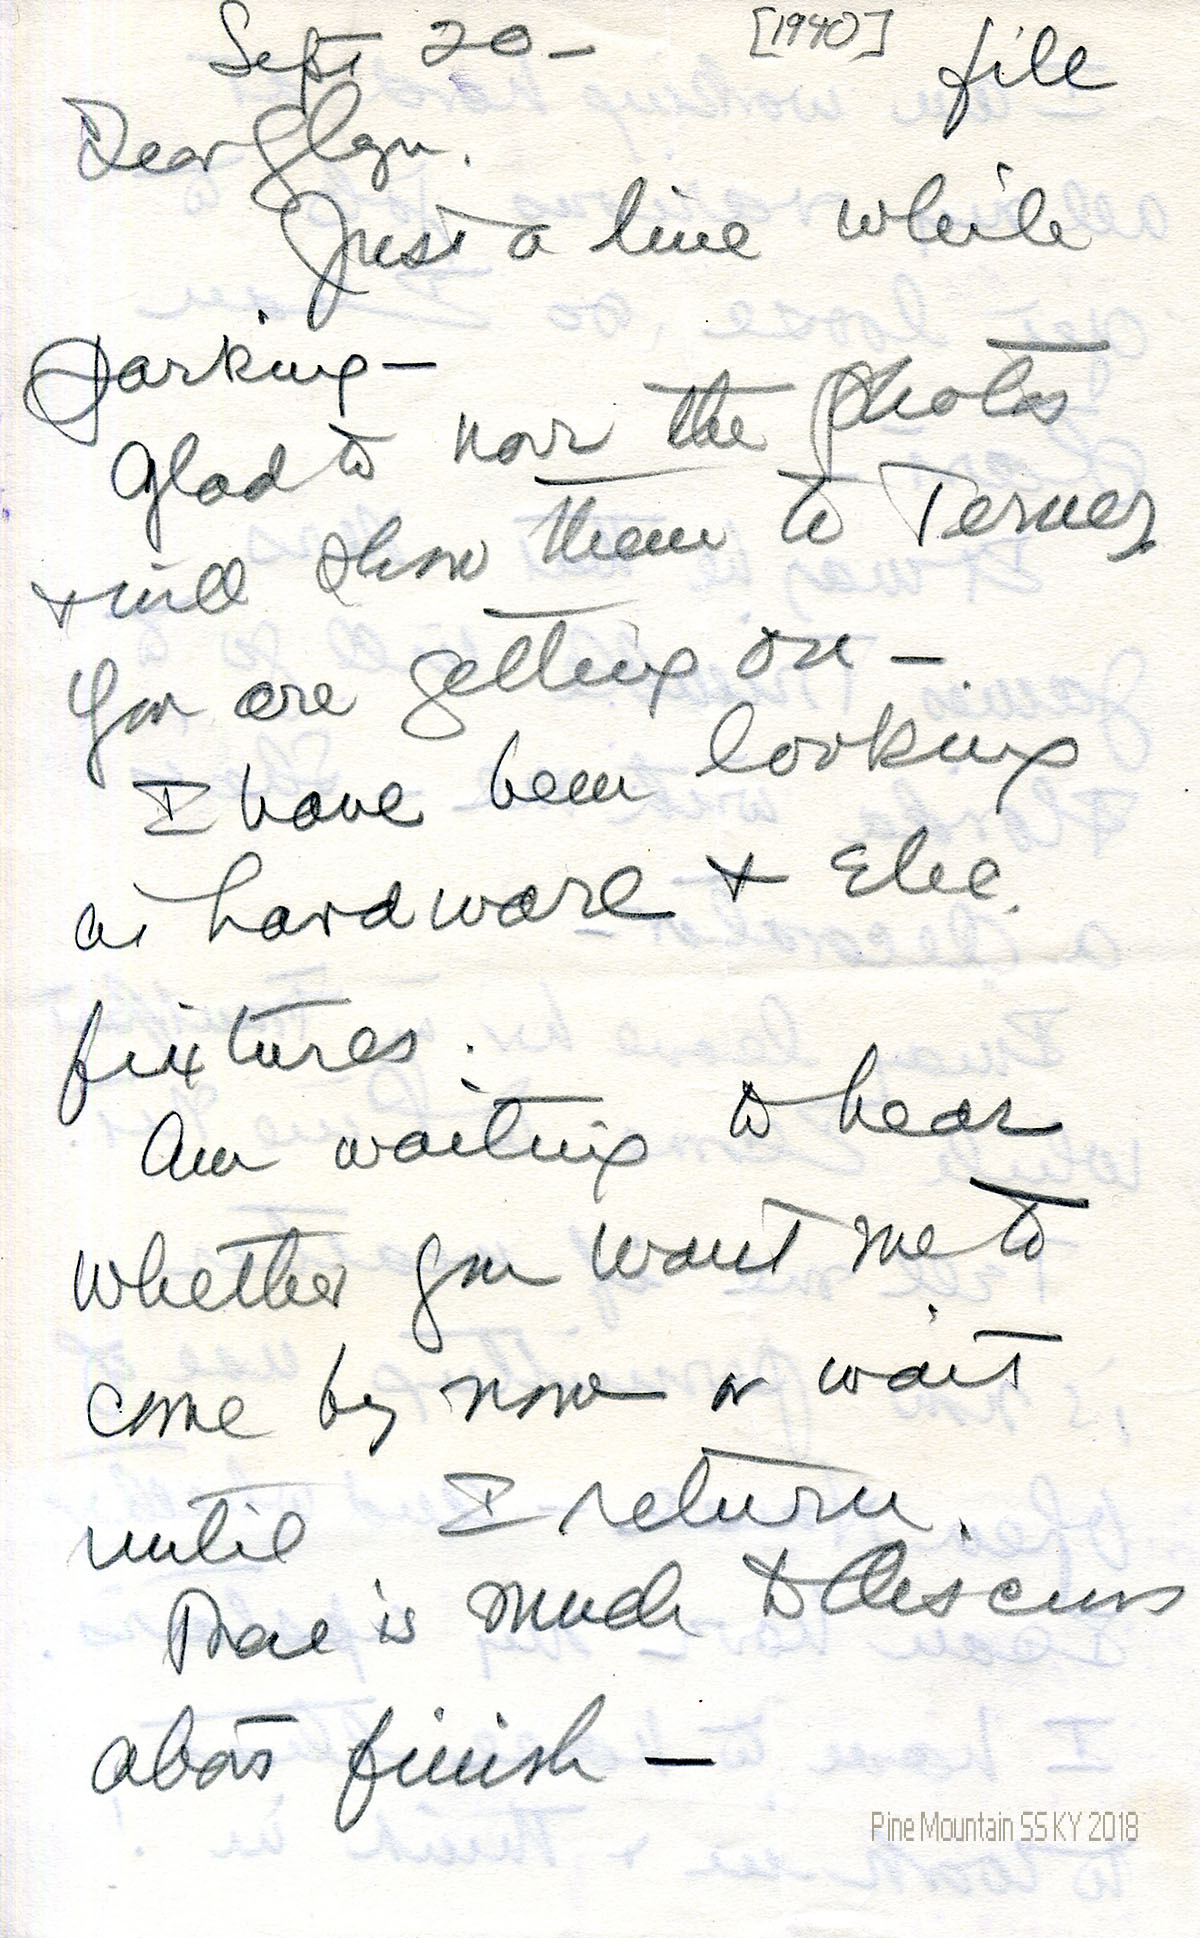 Sept 20 — [1940] file
Dear Glyn.
Just a line while
parking —
Glad to have the photos
& will show them to
You are getting on —
I have been looking
at hardware & Elec.
fixtures.
Am waiting to hear
whether you want me to
come by now or wait
until I return.
There is much to discuss
about finish —
Pine Mountain SS KY 2018